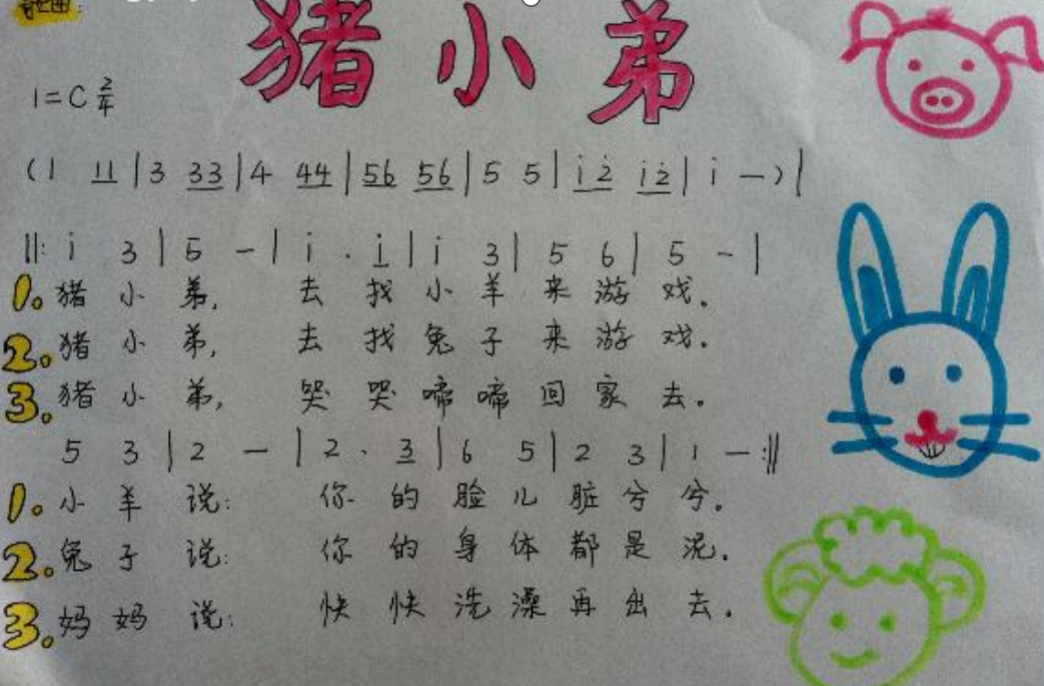 歌曲:
猪小弟
1=C 2/4
(1 11|3 33|4 44|56 56|5 5|i 2̇ i 2̇|i —)|
‖: i 3|5 —|i · i|i 3|5 6|5 —|
1. 猪小弟, 去找小羊来游戏.
2. 猪小弟, 去找兔子来游戏.
3. 猪小弟, 哭哭啼啼回家去.
5 3|2 —|2 · 3|6 5|2 3|1 — :‖
1. 小羊说: 你的脸儿脏兮兮.
2. 兔子说: 你的身体都是泥.
3. 妈妈说: 快快洗澡再出去.